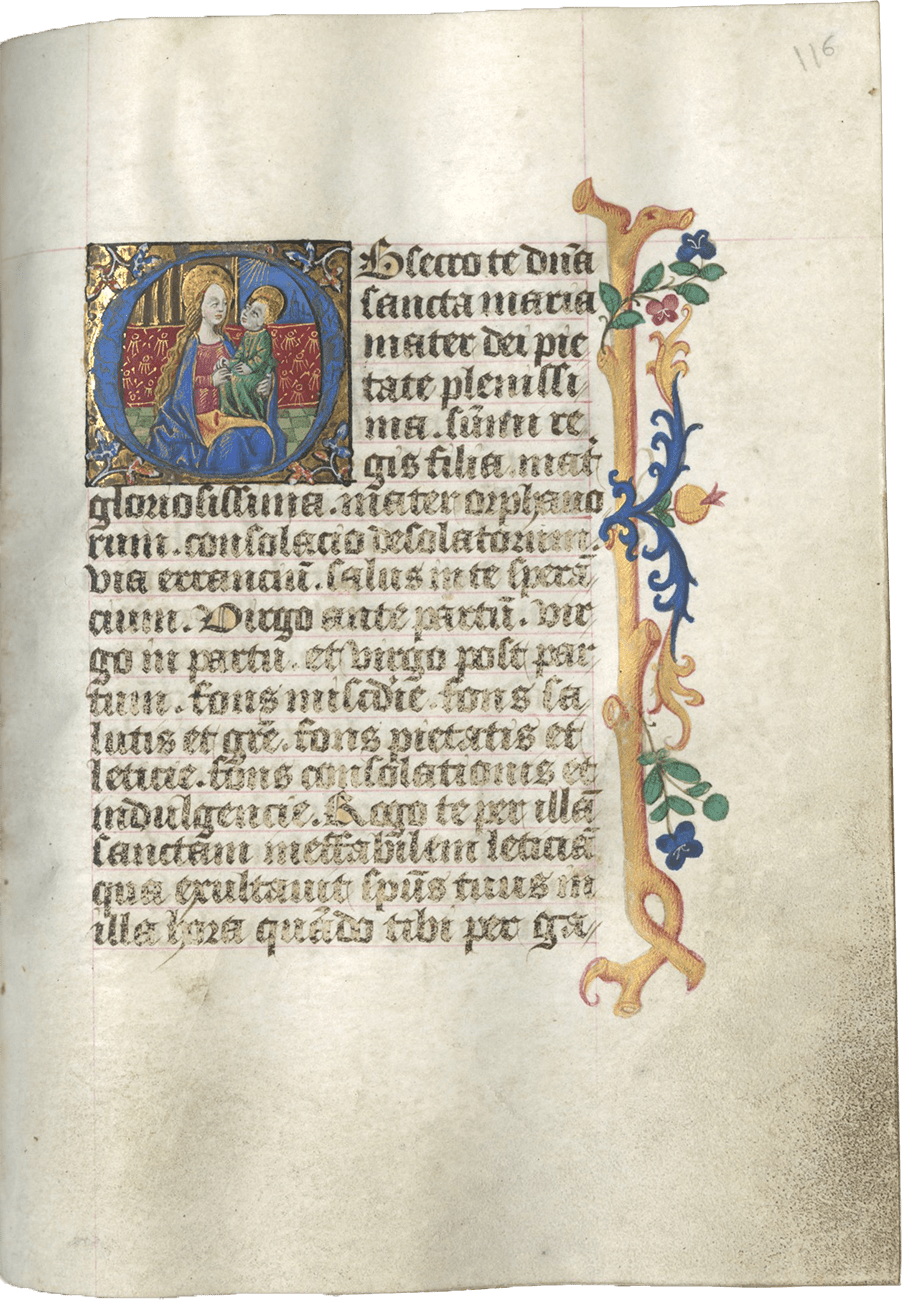 116
OBsecro te dn̄a
sancta maria
mater dei pie
tate plenissi
ma. sūmi re
gis filia. mat̉
gloriosissima. m̄ater orphano
rum. consolacio desolatorum.
via erranciū. salus in te sperā
cium. Virgo ante partū. vir
go in partu. et virgo post par
tum. fons mis̄cdie. fons sa
lutis et gr̄e. fons pietatis et
leticie. fons consolationis et
indulgencie. Rogo te per illā
sanctam ineffabilem leticiā
qua exultauit sp̄us tuus in
illa hora quādo tibi per ga